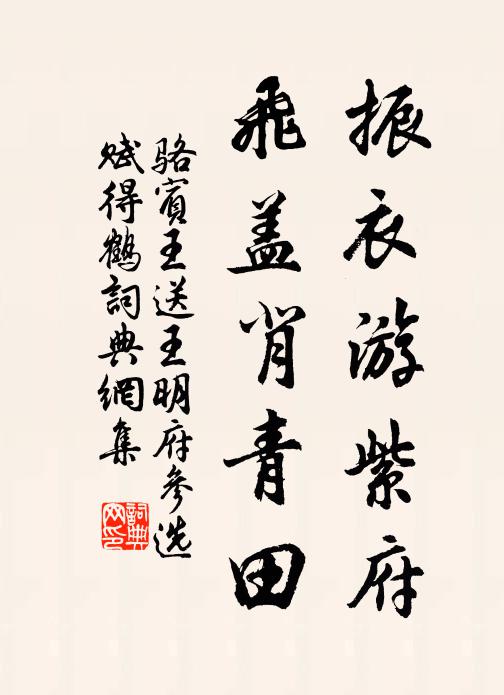 振衣游紫府
飞盖肖青田
骆宾王送王明府参选
赋得鹤词典網集
詞典网印